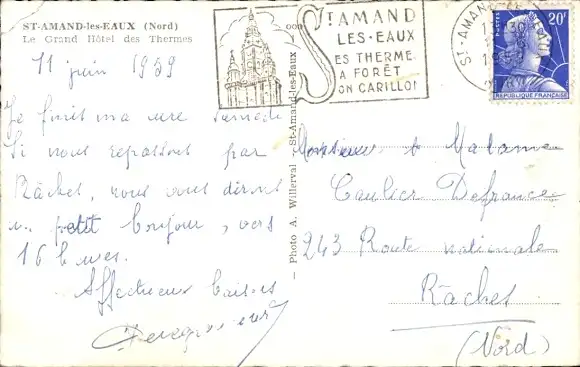 ST-AMAND-les-EAUX (Nord)
Le Grand Hôtel des Thermes
11 juin 1959
Je finis ma cure samedi
Si nous repassons par
Râches, nous vous dirons
un petit bonjour, vers
16 heures.
Affectueux baisers
ST AMAND
LES-EAUX
ES THERME
A FORÊT
ON CARILLON
ST-AMAND-
20F
POSTES
REPUBLIQUE FRANÇAISE
— Photo A. Willerval - St-Amand-les-Eaux
Monsieur & Madame
Caulier Defrance
243 Route nationale
Râches
(Nord)